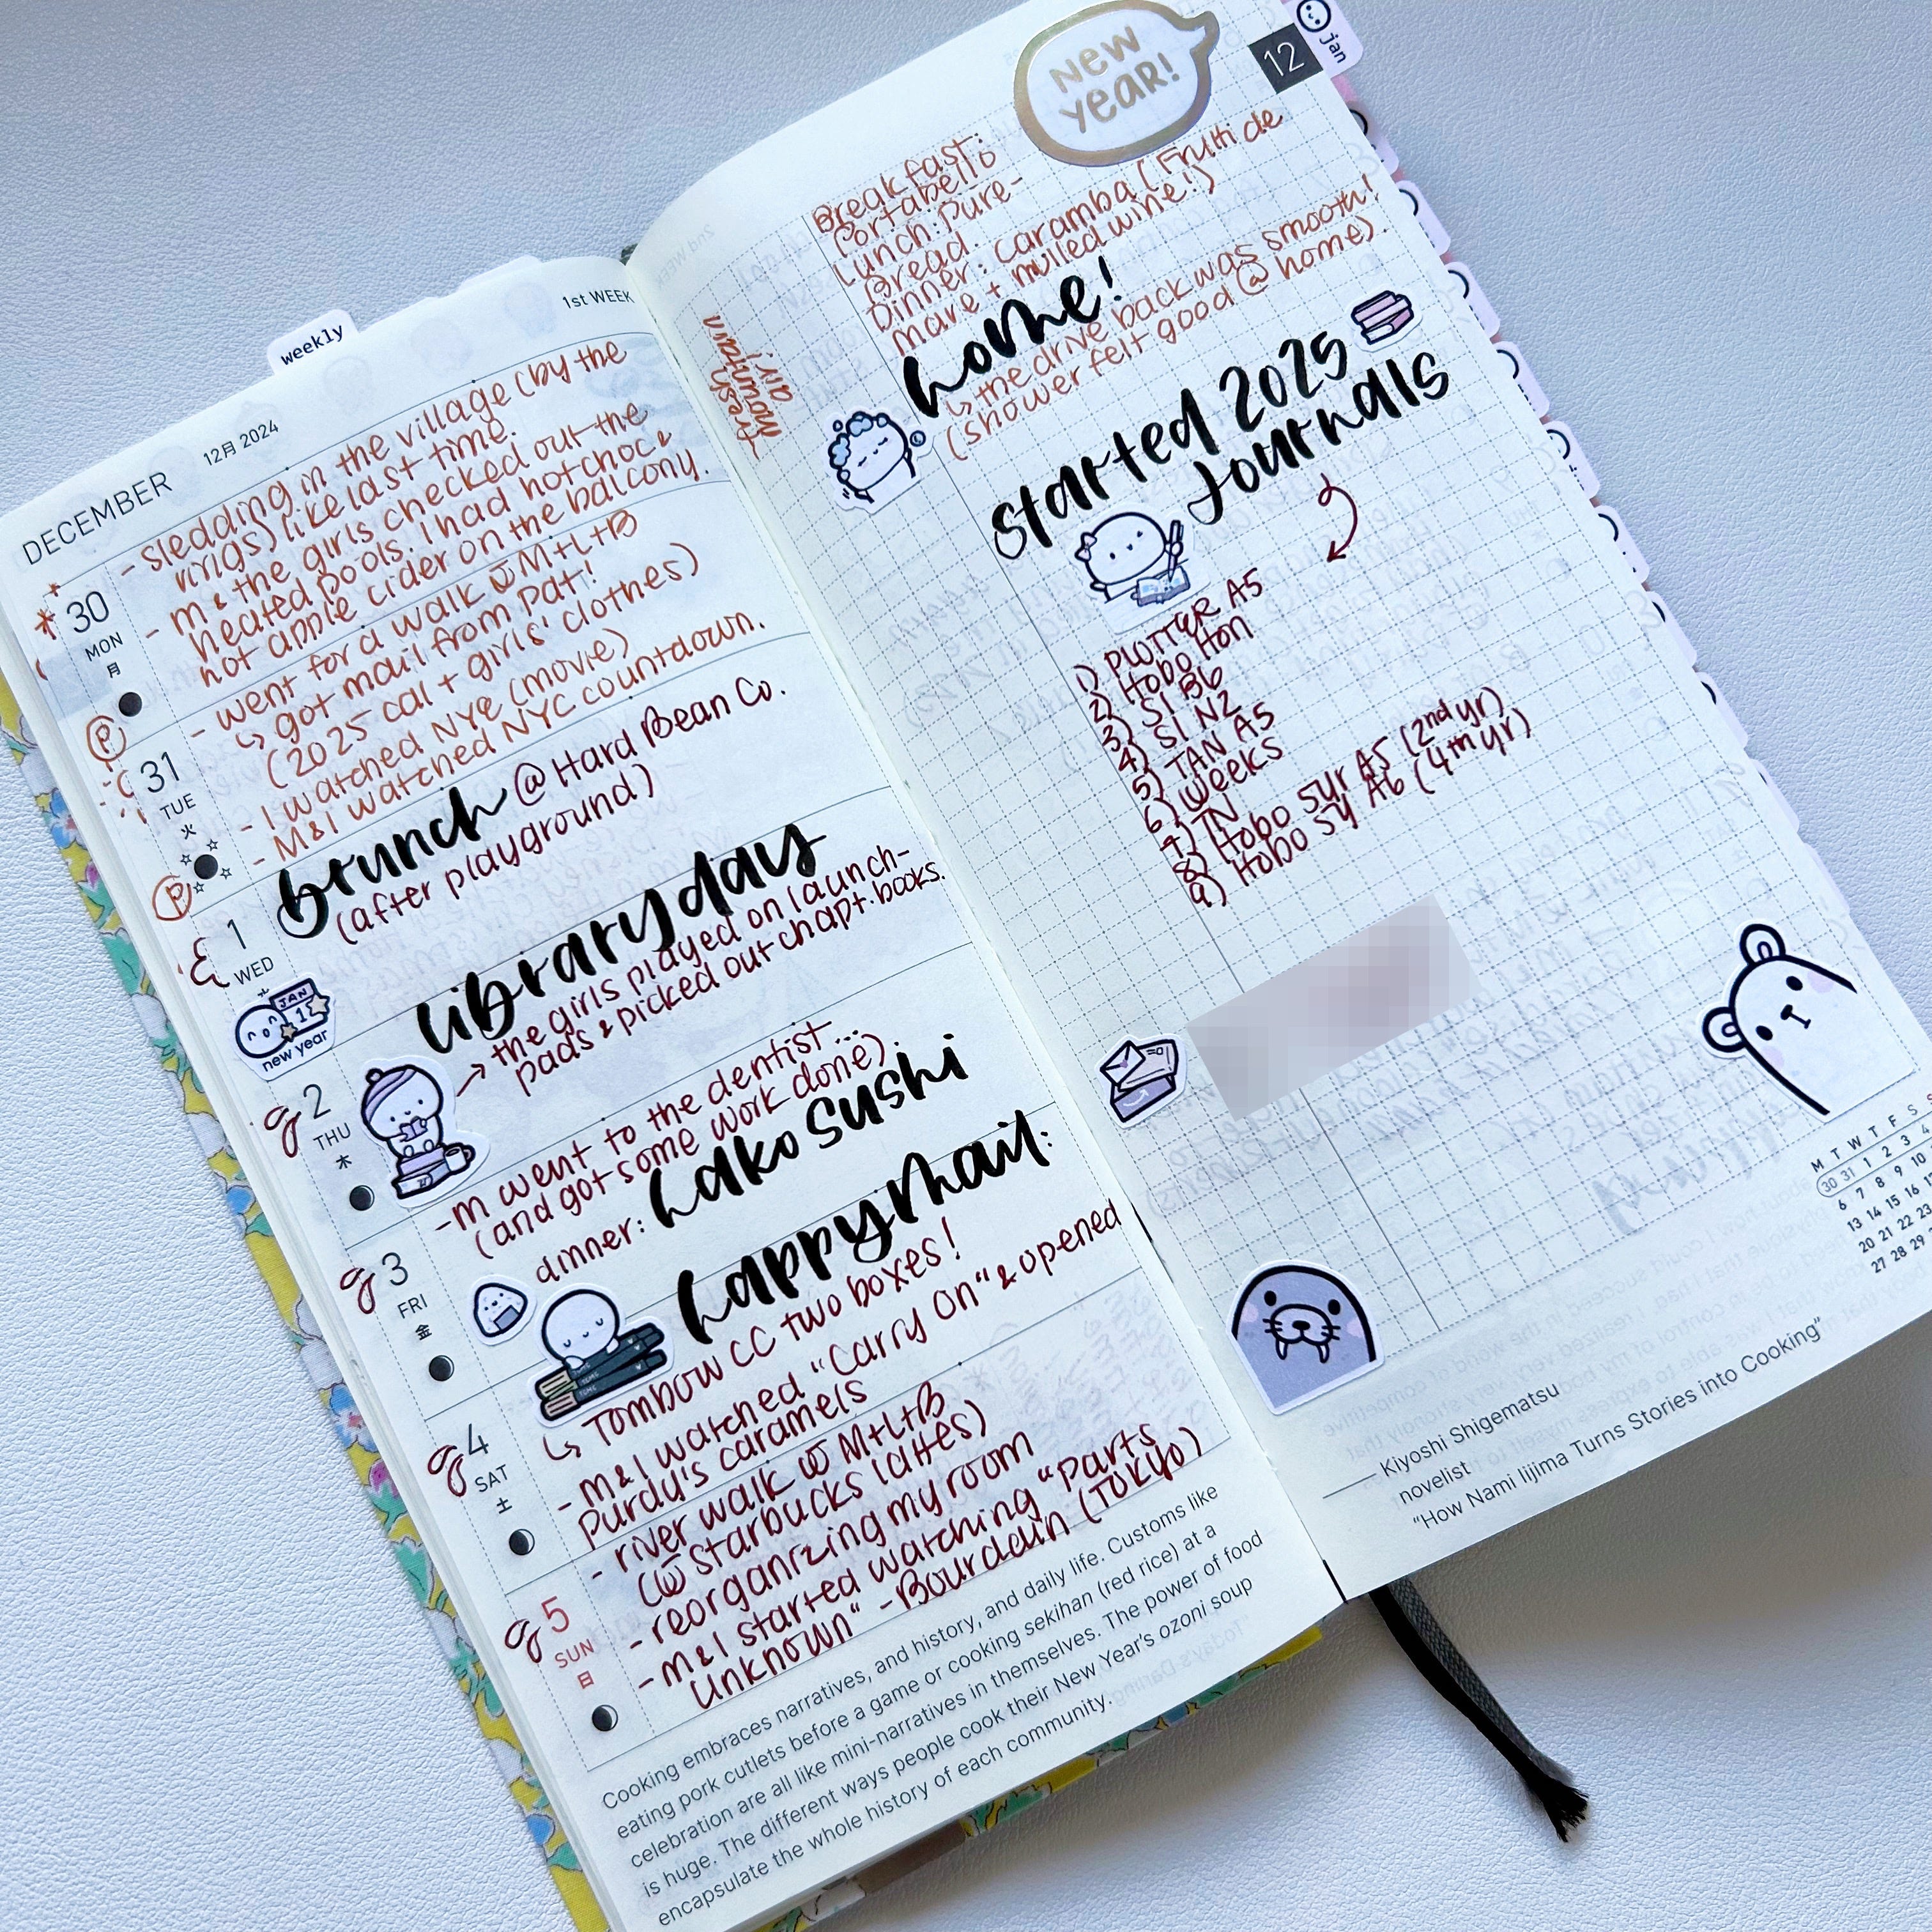 weekly
DECEMBER 12月 2024 1st WEEK
30
MON
月
- sledding in the village (by the
rings) like last time.
- m & the girls checked out the
heated pools. I had hot choc &
hot apple cider on the balcony.
P
31
TUE
火
- went for a walk w M+L+B
↳ got mail from pat!
(2025 cal + girls' clothes)
- I watched NYE (movie)
- M&I watched NYC countdown.
P
1
WED
brunch @ Hard Bean Co.
(after playground)
JAN
1
new year
2
THU
木
library day
→ the girls played on launch-
pads & picked out chapt. books.
3
FRI
金
- m went to the dentist...
(and got some work done).
dinner: Hako Sushi
4
SAT
土
happy mail:
↳ TOMBOW CC two boxes!
- m&I watched "Carry On" & opened
purdy's caramels
5
SUN
日
- river walk w M+L+B
(w starbucks lattes)
- reorganizing my room
- m&I started watching "parts
unknown" - Bourdain (TOKYO)
Cooking embraces narratives, and history, and daily life. Customs like
eating pork cutlets before a game or cooking sekihan (red rice) at a
celebration are all like mini-narratives in themselves. The power of food
is huge. The different ways people cook their New Year's ozoni soup
encapsulate the whole history of each community.
jan
12
NEW
YEAR!
Breakfast:
Portabello
Lunch: Pure-
Bread.
Dinner: Caramba (Frutti de
mare + mulled wine!)
fresh
mountain
air!
home!
↳ the drive back was smooth!
(shower felt good @ home).
started 2025
Journals
1) PLOTTER A5
2) Hobo Hon
3) SI B6
4) SI N2
5) TAN A5
6) weeks
7) TN
8) Hobo 5yr A5 (2nd yr)
9) Hobo 5y A6 (4th yr)
M T W T F S S
30 31 1 2 3 4
6 7 8 9 10
13 14 15 16 17
20 21 22 23
27 28 29
— Kiyoshi Shigematsu
novelist
"How Nami Iijima Turns Stories into Cooking"